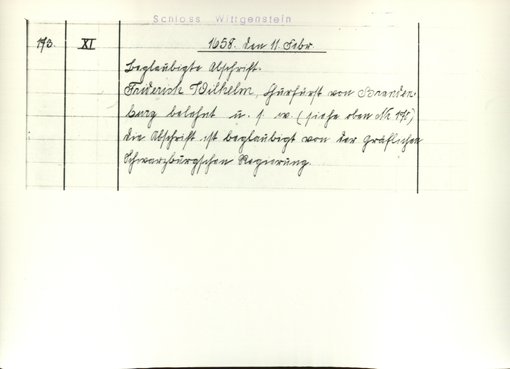 Schloss Wittgenstein
173. XI 1658. den 11. Febr.
Beglaubigte Abschrift.
Friederich Wilhelm, Churfürst von Branden-
burg belehnt u. s. w. (siehe oben No 171,)
die Abschrift ist beglaubigt von der Gräflichen
Schwarzburgschen Regierung.